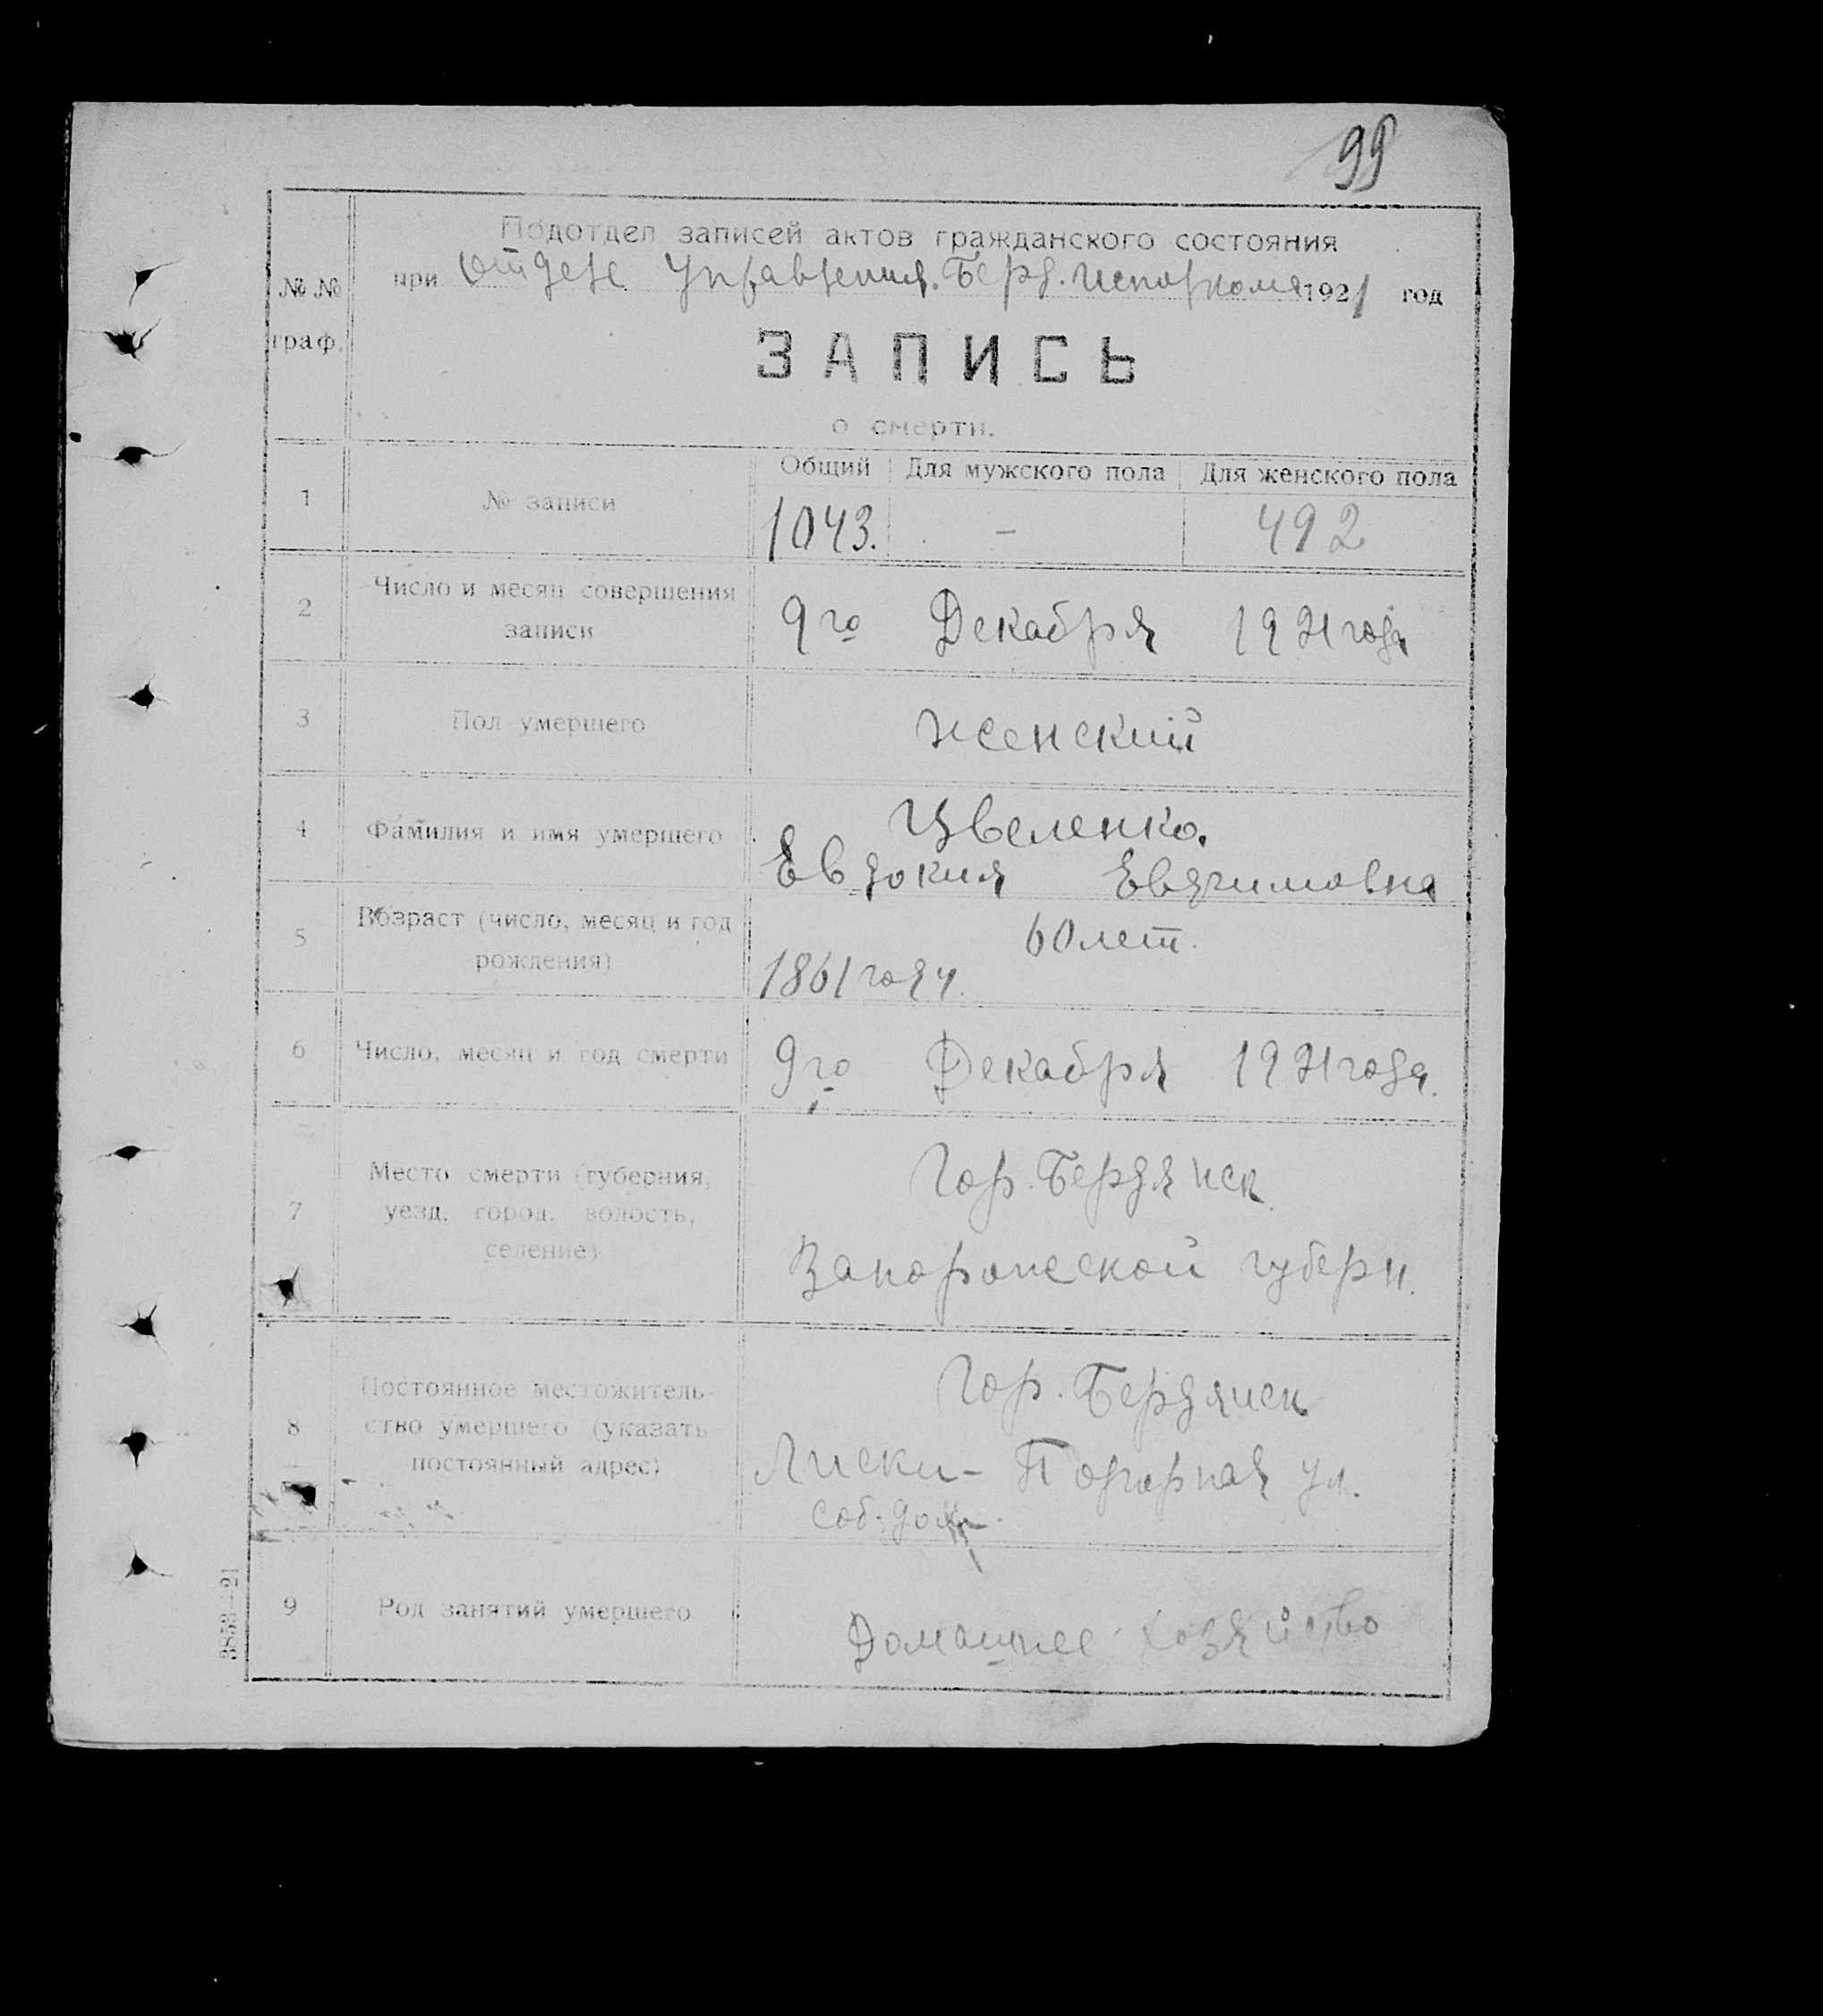 99
Подотдел записей актов гражданского состояния
при Отделе Управления. Берд. Исполкома 1921 год
№ № граф.
ЗАПИСЬ
о смерти.
1 № записи
Общий Для мужского пола Для женского пола
1043. - 492
2 Число и месяц совершения
записи
9го Декабря 1921 года
3 Пол умершего женский
4 Фамилия и имя умершего
Цвеленко.
Евдокия
5 Возраст (число, месяц и год
рождения)
60 лет.
1861 году.
6 Число, месяц и год смерти 9го Декабря 1921 года.
7 Место смерти (губерния,
уезд, город, волость,
селение)
Гор. Бердянск
Запорожской губерн.
8 Постоянное местожитель-
ство умершего (указать
постоянный адрес)
Гор. Бердянск
Лиски - Подгорная ул.
соб. дом.
9 Род занятий умершего Домашнее хозяйство
3853—21